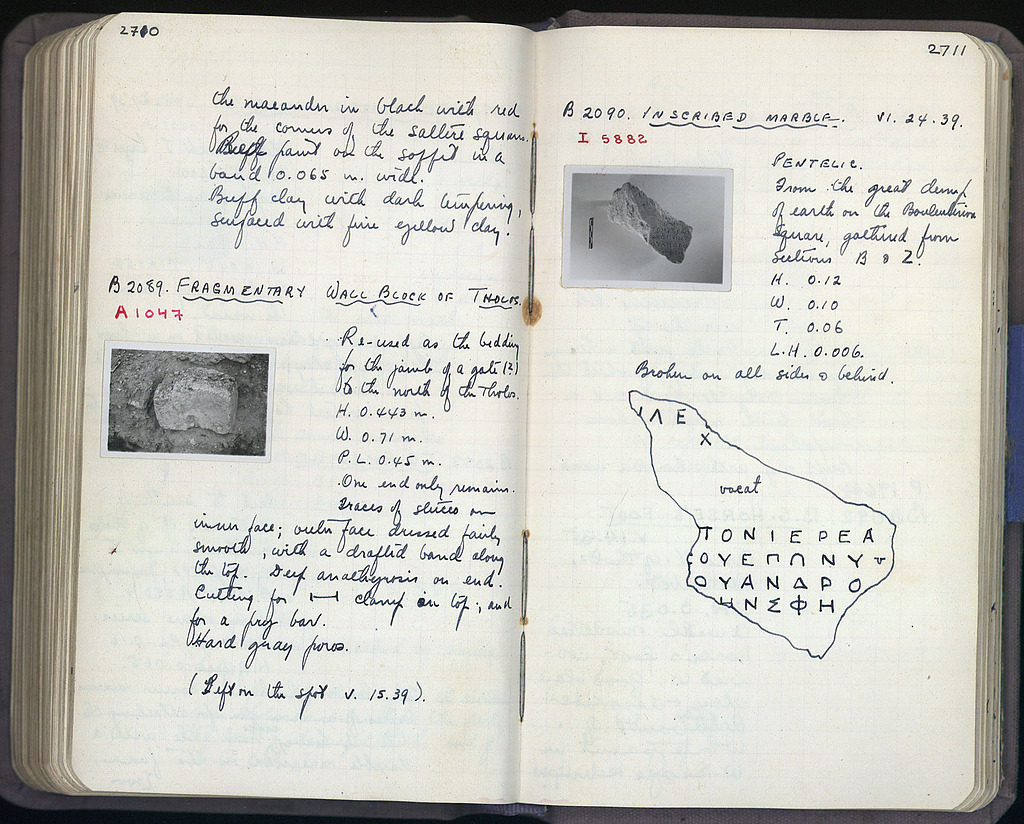 2710
the maeander in black with red
for the corners of the saltire squares.
Buff paint on the soffit in a
band 0.065 m. wide.
Buff clay with dark tempering,
surfaced with fine yellow clay.
B 2089. FRAGMENTARY WALL BLOCK OF THOLOS.
A 1047
Re-used as the bedding
for the jamb of a gate (?)
to the north of the Tholos.
H. 0.443 m.
W. 0.71 m.
P.L. 0.45 m.
One end only remains.
Traces of stucco on
inner face; outer face dressed fairly
smooth, with a drafted band along
the top. Deep anathyrosis on end.
Cutting for ⊢⊣ clamp on top; and
for a pry bar.
Hard gray poros.
(Left on the spot V. 15.39).
2711
B 2090. INSCRIBED MARBLE. VI. 24.39.
I 5882
PENTELIC.
From the great dump
of earth on the Bouleuterion
Square, gathered from
Sections B & Z.
H. 0.12
W. 0.10
T. 0.06
L.H. 0.006.
Broken on all sides & behind.
ΙΛΕ
Χ
vacat
ΤΟΝΙΕΡΕΑ
ΟΥΕΠΩΝΥΤ
ΟΥΑΝΔΡΟ
ΗΝΣΦΗ